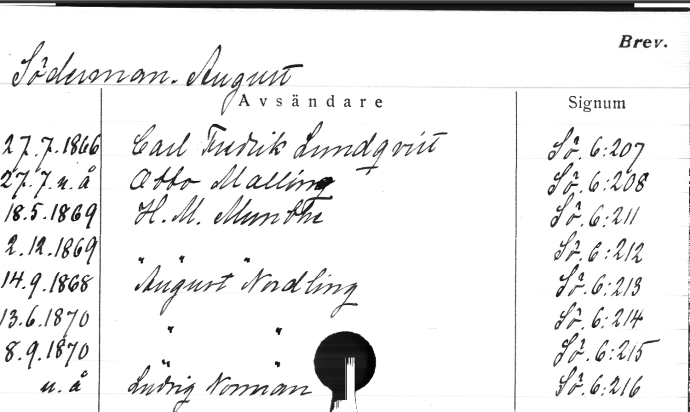 Brev.
Söderman. August
Avsändare Signum
27.7.1866 Carl Fredrik Lundqvist Sö. 6:207
27.7. u. å Otto Malling Sö. 6:208
18.5.1869 H. M. Munthe Sö. 6:211
2.12.1869 " " " Sö. 6:212
14.9.1868 August Nordling Sö. 6:213
13.6.1870 " " Sö. 6:214
8.9.1870 " " Sö. 6:215
u. å Ludvig Norman Sö. 6:216